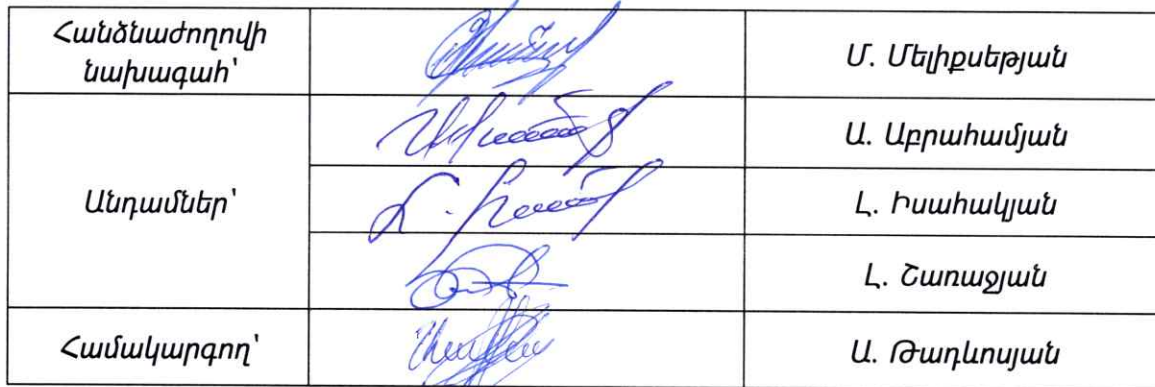 Հանձնաժողովի
նախագահ՝
Մ. Մելիքսեթյան
Անդամներ՝
Ա. Աբրահամյան
Լ. Իսահակյան
Լ. Շառաջյան
Համակարգող՝
Ա. Թադևոսյան